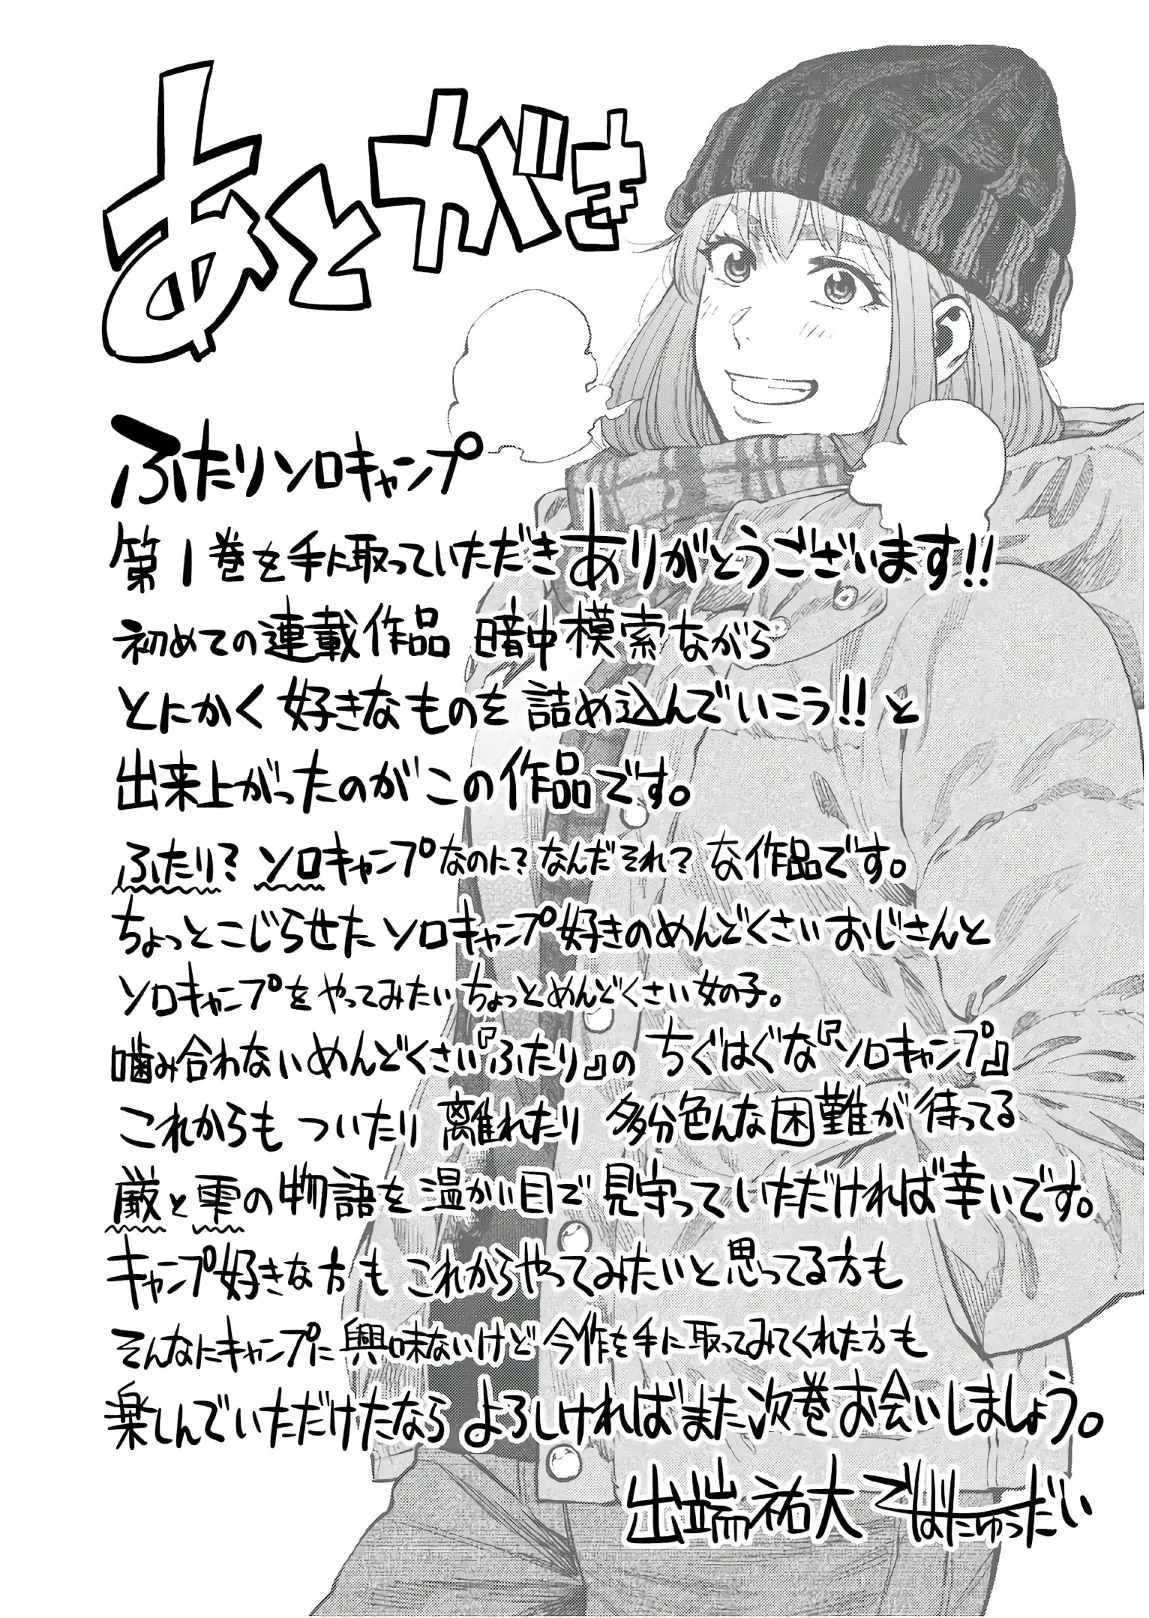 あとがき
ふたりソロキャンプ
第1巻を手に取っていただきありがとうございます!!
初めての連載作品 暗中模索ながら
とにかく好きなものを詰め込んでいこう!!と
出来上がったのがこの作品です。
ふたり?ソロキャンプなのに?なんだそれ?な作品です。
ちょっとこじらせたソロキャンプ好きのめんどくさいおじさんと
ソロキャンプをやってみたいちょっとめんどくさい女の子。
噛み合わないめんどくさい『ふたり』のちぐはぐな『ソロキャンプ』
これからも ついたり 離れたり 多分色んな困難が待ってる
厳と雫の物語を温かい目で見守っていただければ幸いです。
キャンプ好きな方も これからやってみたいと思ってる方も
そんなにキャンプに興味ないけど今作を手に取ってみてくれた方も
楽しんでいただけたなら よろしければまた次巻お会いしましょう。
出端祐大 でばたゆうだい